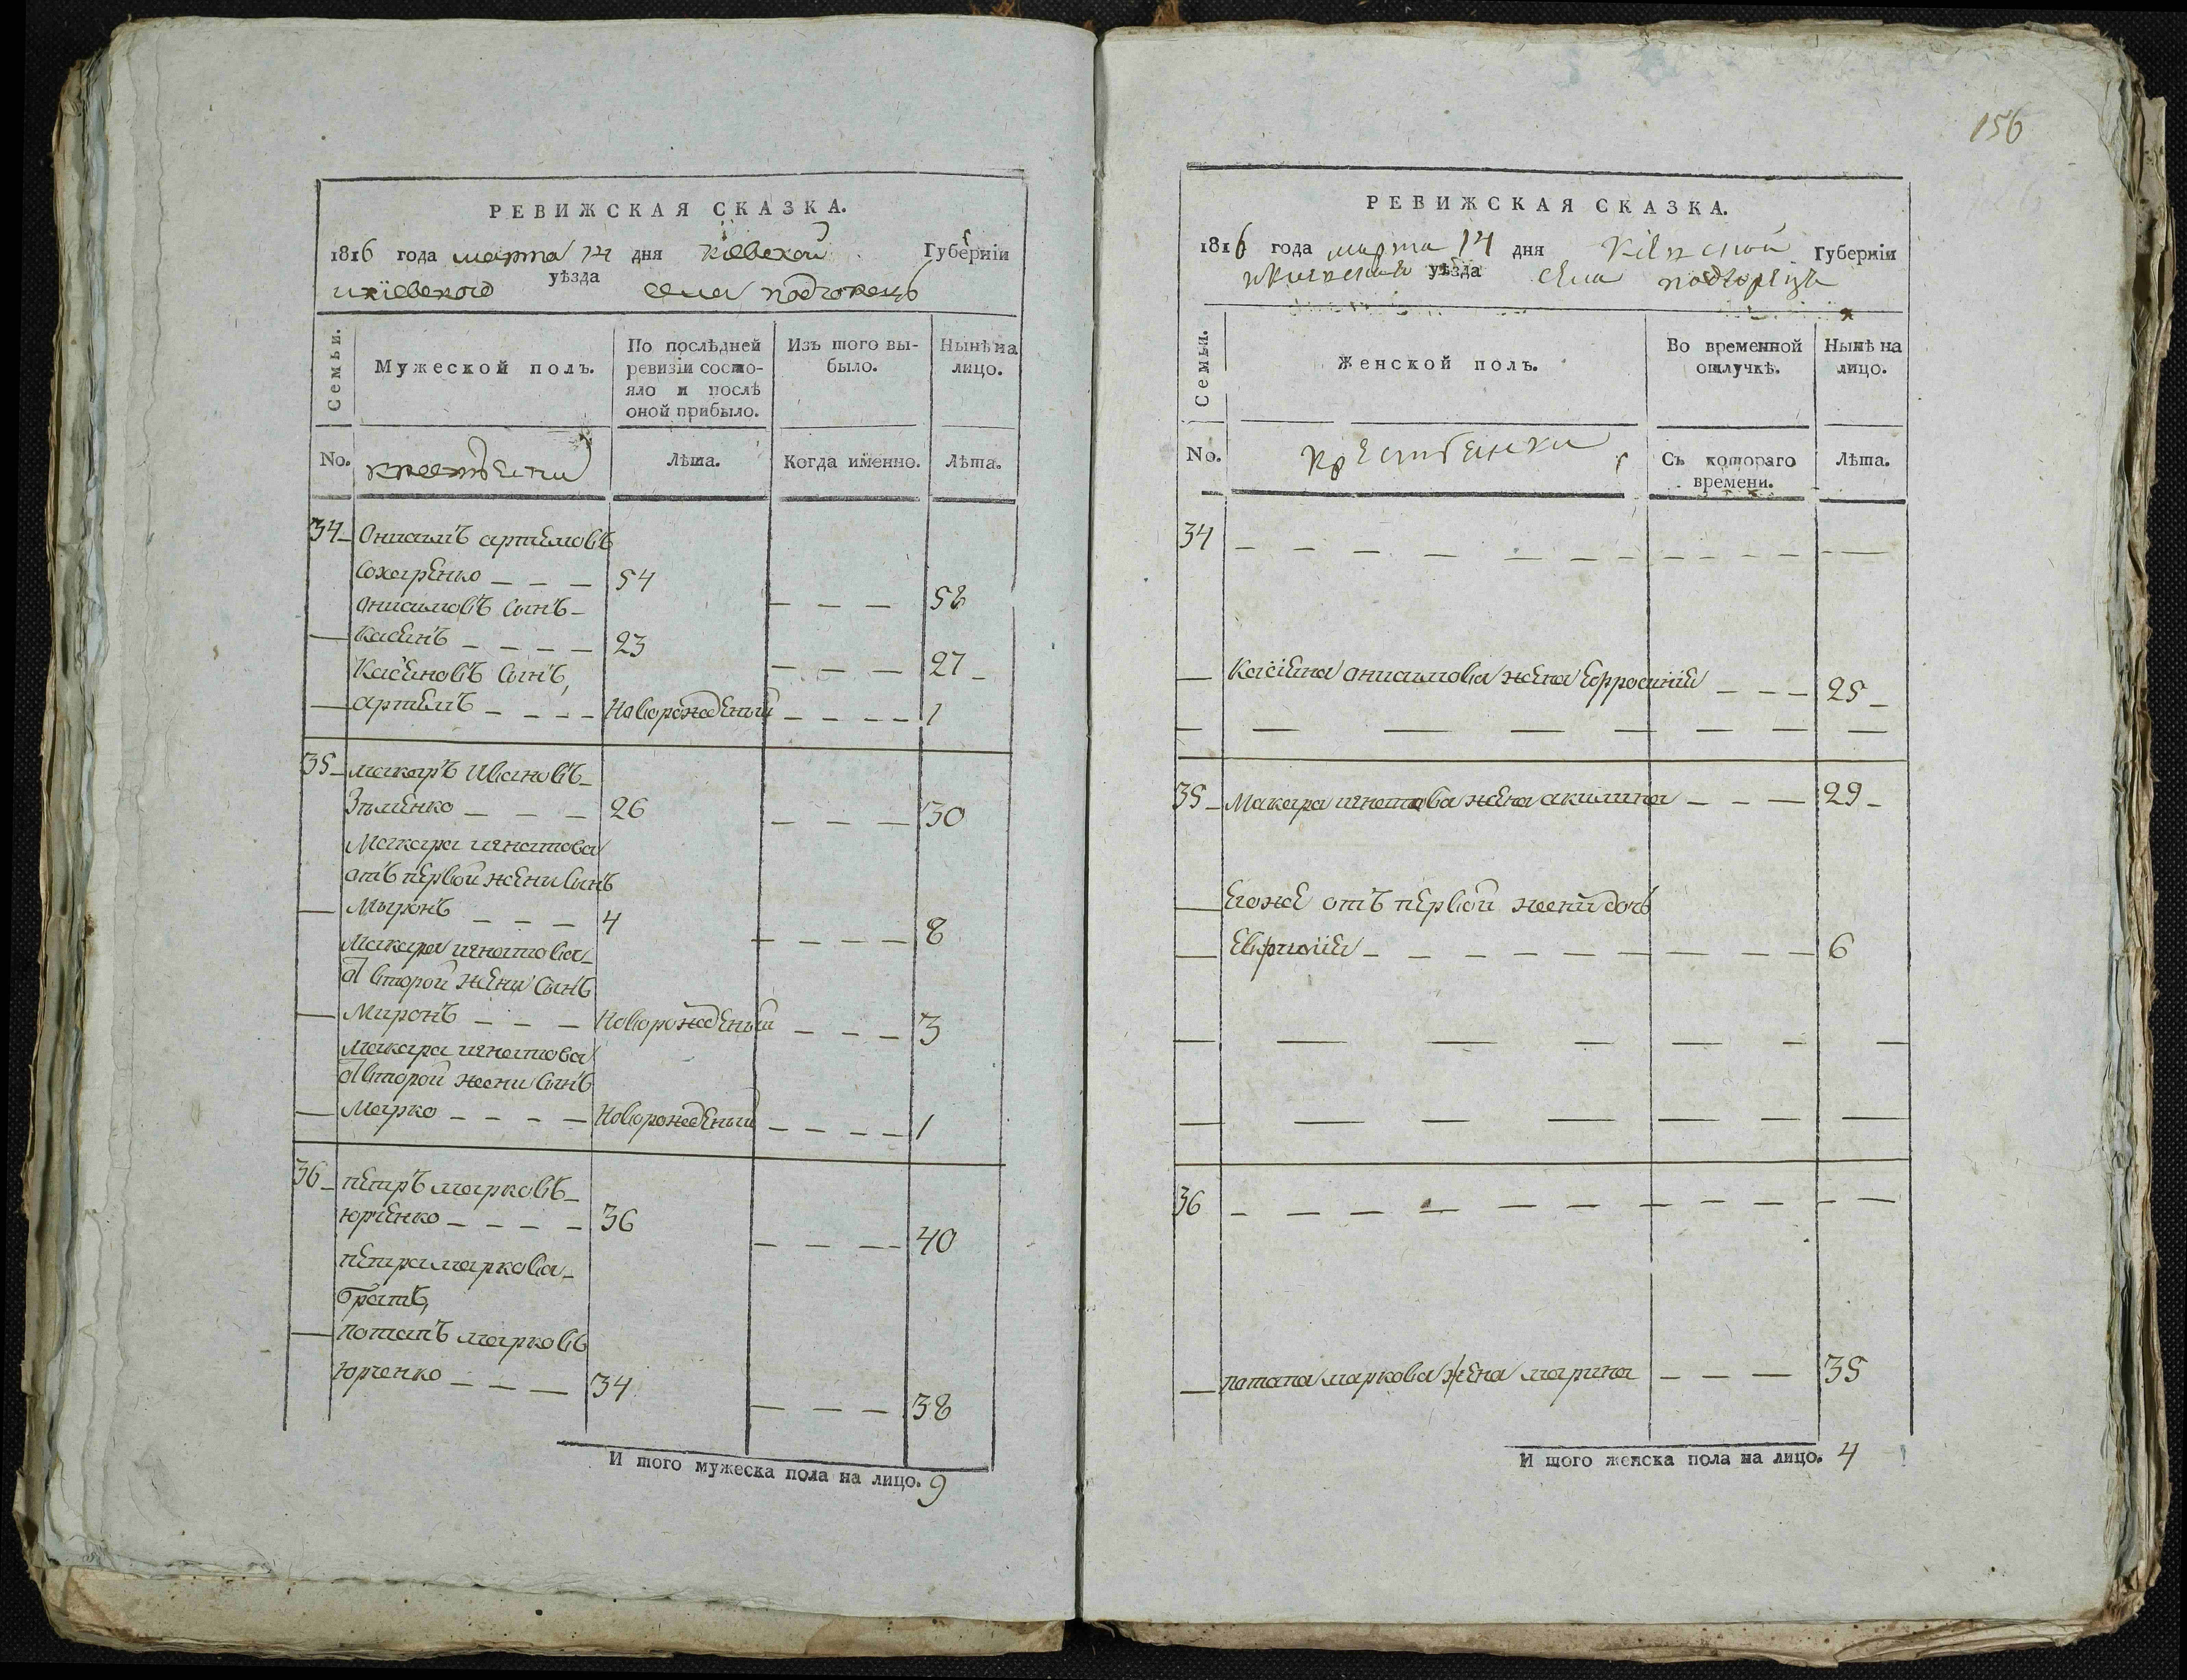 РЕВИЖСКАЯ СКАЗКА.
1816 года марта 14 дня кіевской Губерніи
икіевского уѣзда села подгорецъ
Семьи.
Мужеской полъ.
По послѣдней ревизіи состояло и послѣ оной прибыло.
Изъ того выбыло.
Нынѣ на лицо.
No.
Лѣта.
Когда именно.
Лѣта.
34 Онисимъ артемовъ
Сохаренко 54 58
онисимовъ сынъ
касенъ 23 27
Касеновъ сынъ
артемъ Новорожденый 1
35 макаръ Ивановъ
26 30
Макара игнатова
отъ первой жени сынъ
Мыронъ 4 8
Макара игнатова
от второй жени сынъ
Миронъ Новорожденый 3
Макара игнатова
от второй жени сынъ
Марко Новорожденый 1
36 петръ марковъ
юрченко 36 40
петра маркова
братъ
потапъ марковъ
юрченко 34 38
И того мужеска пола на лицо. 9
156
РЕВИЖСКАЯ СКАЗКА.
1816 года марта 14 дня Губерніи
уѣзда села подгорецъ
Семьи.
Женской полъ.
Во временной отлучкѣ.
Нынѣ на лицо.
No.
Съ котораго времени.
Лѣта.
34
Касіена онисимова жена Ефросинія 25
35 Макара игнатова жена акилина 29
Егоже отъ первой жени дочь
Евфимія 6
36
потапа маркова жена марина 35
И того женска пола на лицо. 4